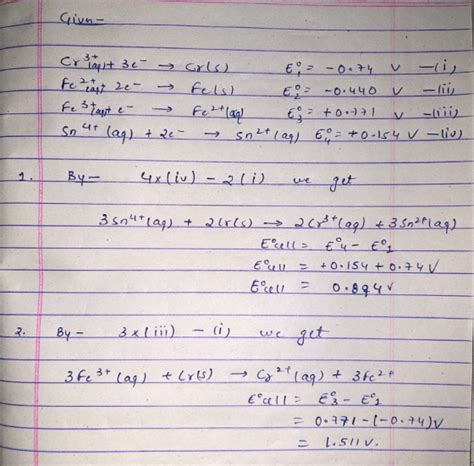 Given-
Cr3+(aq) + 3e- → Cr(s) E°1 = -0.74 V -(i)
Fe2+(aq) + 2e- → Fe(s) E°2 = -0.440 V -(ii)
Fe3+(aq) + e- → Fe2+(aq) E°3 = +0.771 V -(iii)
Sn4+(aq) + 2e- → Sn2+(aq) E°4 = +0.154 V -(iv)
1. By- 4x(iv) - 2(i) we get
3Sn4+(aq) + 2Cr(s) → 2Cr3+(aq) + 3Sn2+(aq)
E°cell = E°4 - E°1
E°cell = +0.154 + 0.74V
E°cell = 0.894V
2. By- 3x(iii) - (i) we get
3Fe3+(aq) + Cr(s) → Cr2+(aq) + 3Fe2+
E°cell = E°3 - E°1
= 0.771-(-0.74)V
= 1.511V.